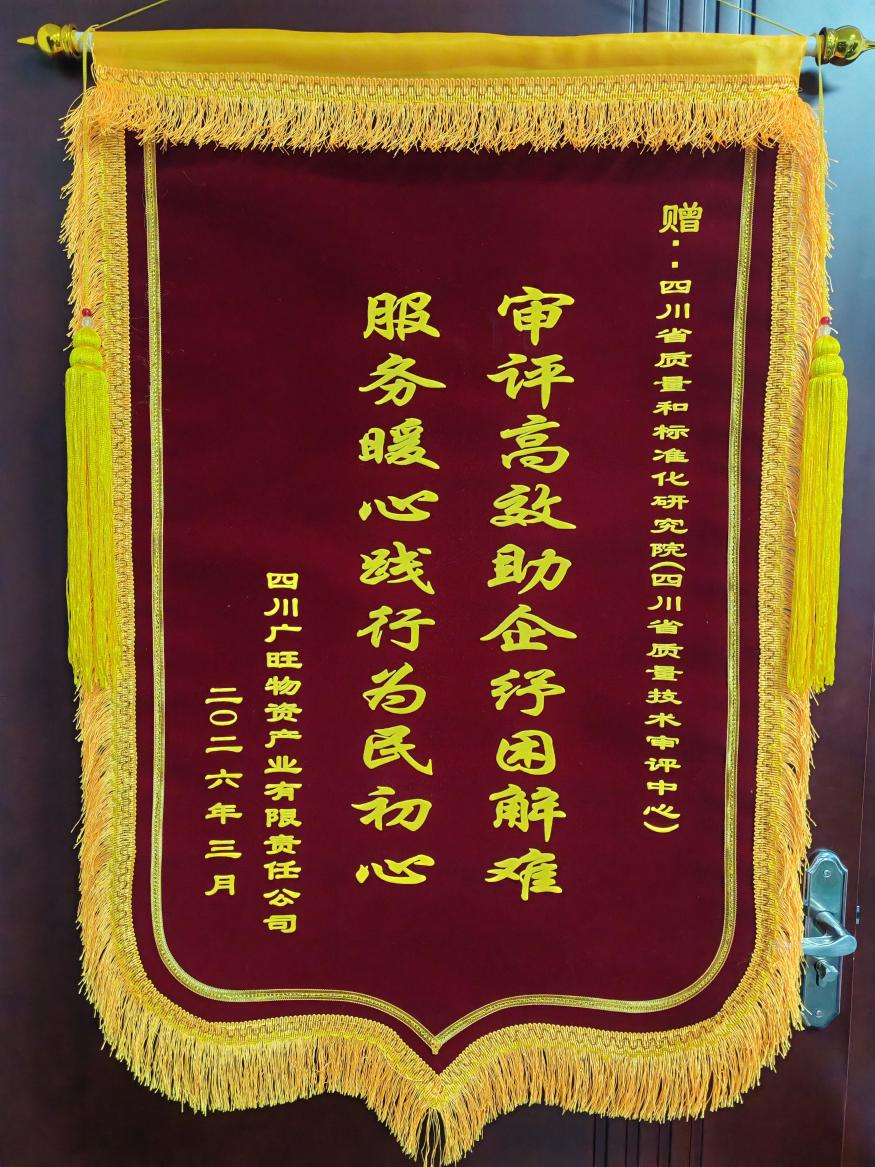 赠：四川省质量和标准化研究院(四川省质量技术审评中心)
审评高效助企纾困解难
服务暖心践行为民初心
四川广旺物资产业有限责任公司
二〇二六年三月